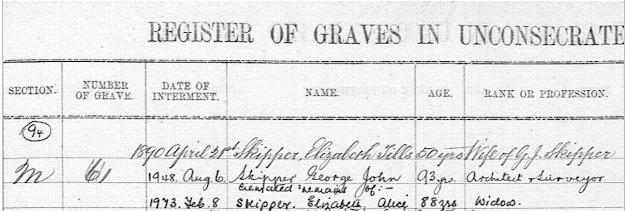 REGISTER OF GRAVES IN UNCONSECRATE
SECTION. NUMBER OF GRAVE. DATE OF INTERMENT. NAME. AGE. RANK OR PROFESSION.
94
1890 April 21st Skipper, Elizabeth Tills 50 yrs Wife of G. J. Skipper
M 1948. Aug 6. Skipper George John 93 yrs. Architect & Surveyor
Cremated remains of:-
1973. Feb. 8 Skipper. Elizabeth Alice 88 yrs Widow.